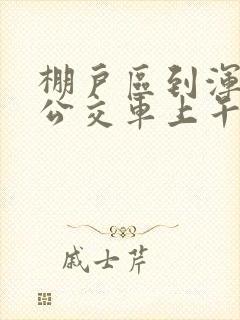 棚戶區到渾
公交車上干
戚士芹